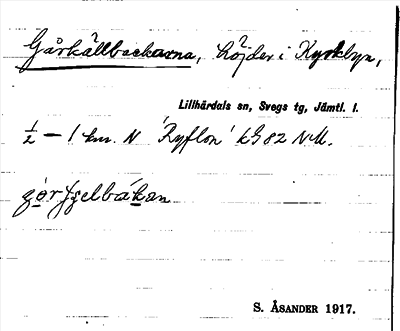 Gårkällbackarna, höjder i Kyrkbyn,
Lillhärdals sn, Svegs tg, Jämtl. l.
½ – 1 km. N 'Ryflon' kG 82 NM.
S. ÅSANDER 1917.